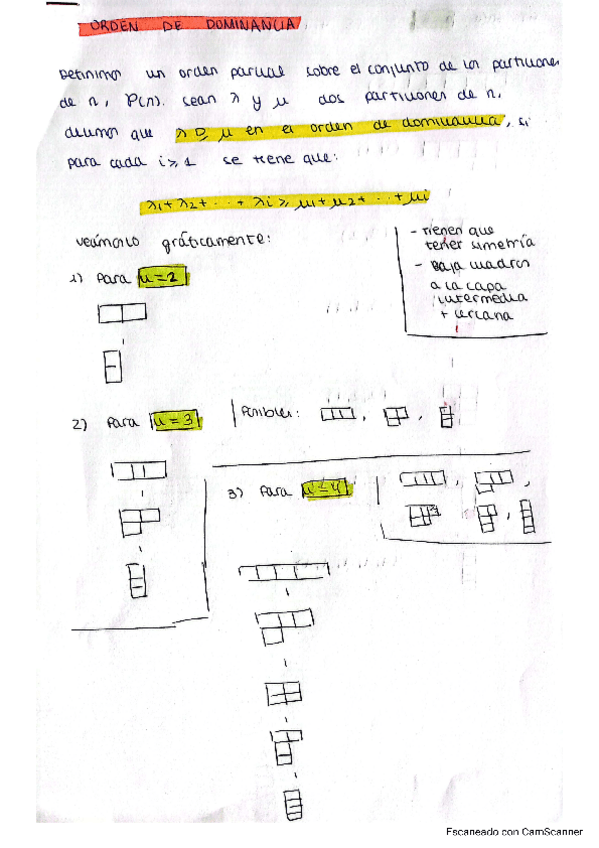 ORDEN DE DOMINANCIA
Definimos un orden parcial sobre el conjunto de las particiones
de n, P(n). Sean λ y μ dos particiones de n,
decimos que λ ⊵ μ en el orden de dominancia, si
para cada i ≥ 1 se tiene que:
λ1 + λ2 + ... + λi ≥ μ1 + μ2 + ... + μi
Veámoslo gráficamente:
- Tienen que
tener simetría
- Baja cuadros
a la capa
intermedia
+ cercana
1) Para n = 2
2) Para n = 3
Posibles:
3) Para n = 4
Escaneado con CamScanner